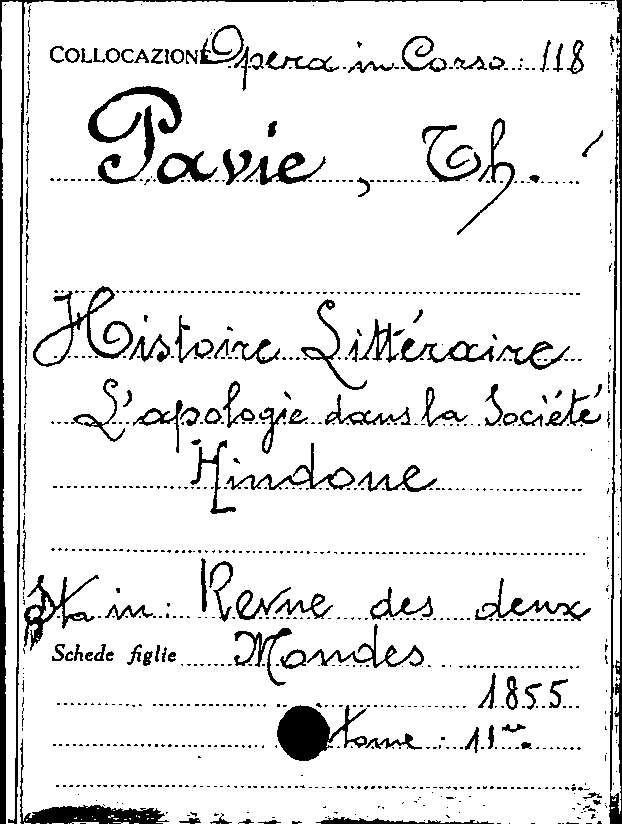 COLLOCAZIONE Opera in Corso: 118
Pavie, Th.
Histoire Littéraire
L'apologie dans la Société
Hindoue
Sta in: Revue des deux
Schede figlie Mondes
1855
tome: 11me.